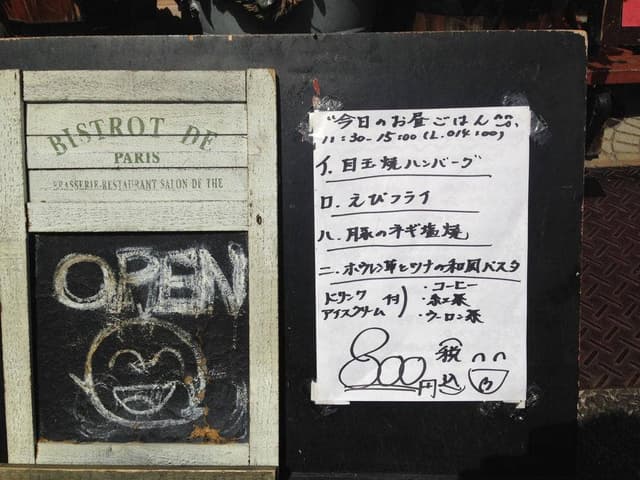 BISTROT DE
PARIS
BRASSERIE-RESTAURANT SALON DE THE
OPEN
"今日のお昼ごはん"
11:30-15:00 (L.O14:00)
イ.目玉焼ハンバーグ
ロ.えびフライ
ハ.豚のネギ塩焼
ニ.ホウレン草とツナの和風パスタ
ドリンク
アイスクリーム
付)
・コーヒー
・紅茶
・ウーロン茶
800円
税込